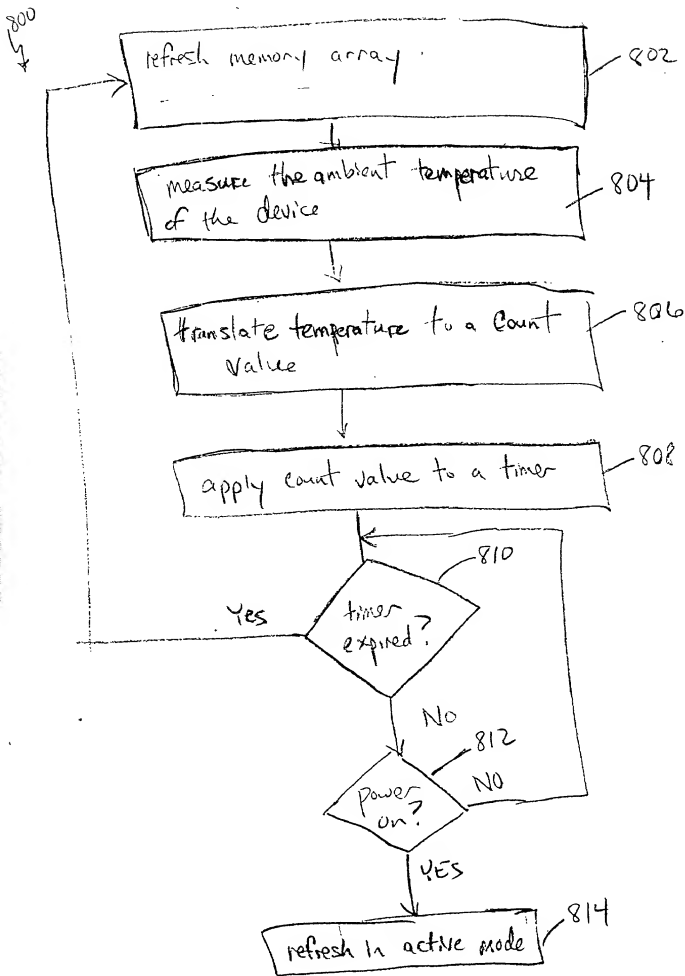 800
refresh memory array
802
measure the ambient temperature
of the device
804
translate temperature to a count
value
806
apply count value to a timer
808
810
Yes
timer
expired?
NO
812
power
on?
NO
YES
814
refresh in active mode